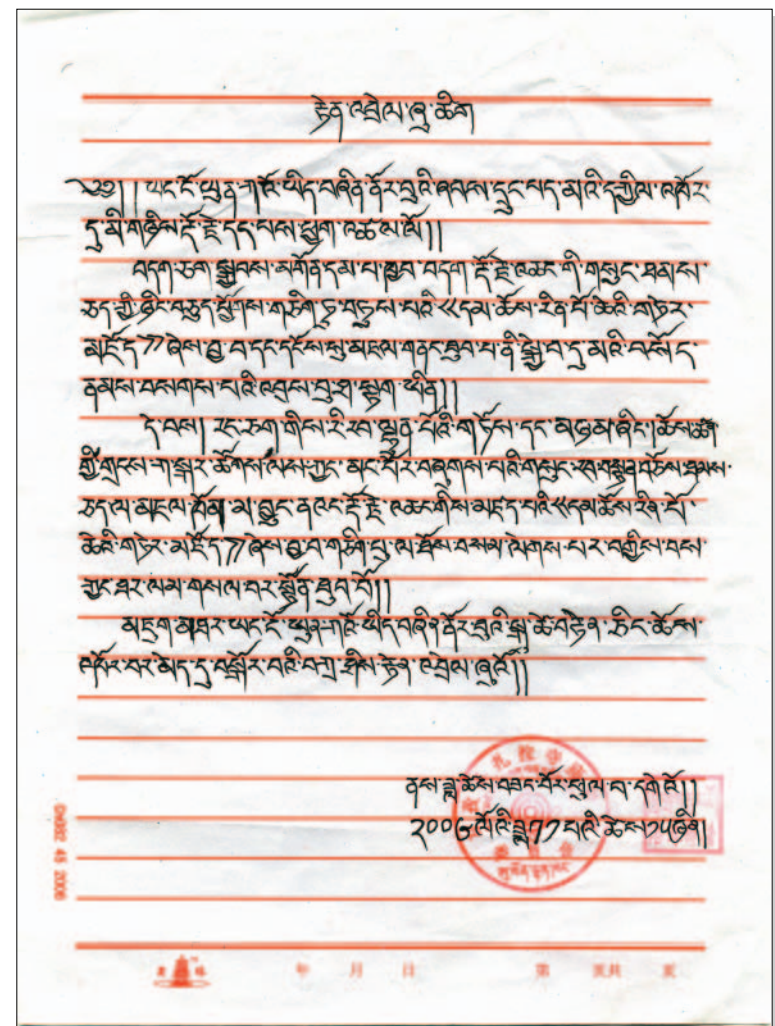 རྟེན་འབྲེལ་ཞུ་ཚིག
༄༅།། ཡང་ངོ་ཡུན་ཀཪྨ་ཡིད་བཞིན་ནོར་བུའི་ཞབས་དྲུང་པད་མའི་དཀྱིལ་འཁོར་
དུ་མི་གཤིས་རྡོ་རྗེ་དད་པས་ཕྱག་འཚལ་ལོ།།
བདག་ཅག་སྐྱབས་མགོན་དམ་པ་ཁྱབ་བདག་རྡོ་རྗེ་འཆང་གི་གསུང་ཐམས་
ཅད་ཀྱི་ཉིང་བཅུད་ཕྱོགས་གཅིག་ཏུ་བཏུས་པའི《དམ་ཆོས་རིན་པོ་ཆེའི་གཏེར་
མཛོད》ཞེས་བྱ་བ་དང་དངོས་སུ་མཇལ་གནང་ཐུབ་པ་ནི་སྐྱེ་བ་དུ་མའི་བསོད་
ནམས་བསགས་པའི་འབྲས་བུ་ཤ་སྟག་ཡིན།།
དེ་བས། རང་ཅག་གིས་རི་རབ་ལྷུན་པོའི་གཏོས་དང་མཉམ་ཞིང་།ཆོས་ཚན་
གྱི་གྲངས་ཀ་སྐར་ཚོགས་ལས་ཀྱང་མང་པོར་བཞུགས་པའི་གསུང་རབ་དགོངས་བཅོས་ཐམས་
ཅད་ལ་མཇལ་ཁོམ་མ་བྱུང་ན་འང་རྡོ་རྗེ་འཆང་གིས་མཛད་པའི《དམ་ཆོས་རིན་པོ་
ཆེའི་གཏེར་མཛོད》ཞེས་བྱ་བ་གཅིག་པུ་ལ་ཐོས་བསམ་ལེགས་པར་བགྱིས་བས་
ཀྱང་ཐར་ལམ་གསལ་བར་སྟོན་ཐུབ་བོ།།
མཇུག་མཐར་ཡང་ངོ་ཡུན་ཀཪྨ་ཡིད་བཞིན་ནོར་བུའི་སྐུ་ཚེ་བརྟེན་ཅིང་ཆོས་
འཁོར་བར་མེད་དུ་བསྐོར་བའི་བཀྲ་ཤིས་རྟེན་འབྲེལ་ཞུའོ།།
ནས་ཟླ་ཚེས་བཟང་པོར་ཕུལ་བ་དགེའོ།།
༢༠༠༦ལོའི་ཟླ༡༡པའི་ཚེས༡༥ཉིན།
Dn082 45 2006
年 月 日 第 页共 页